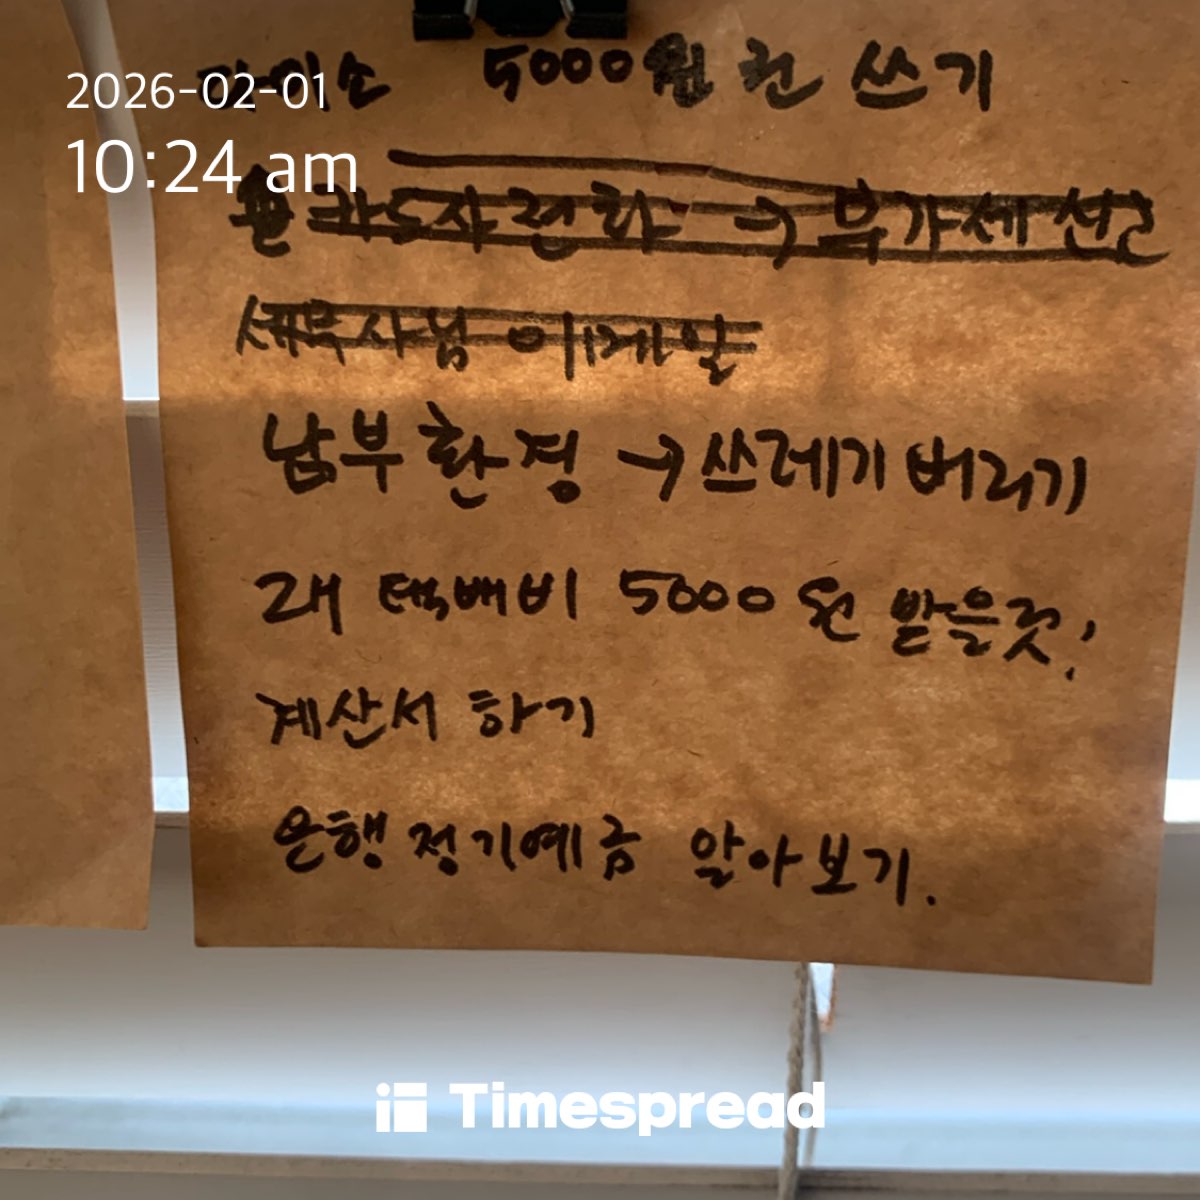 2026-02-01
10:24 am
다이소 5000원권 쓰기
카드자련화 → 부가세 신고
세무사님 이메일
남부환경 → 쓰레기 버리기
래 택배비 5000원 받을것!
계산서 하기
은행 정기예금 알아보기.
Timespread